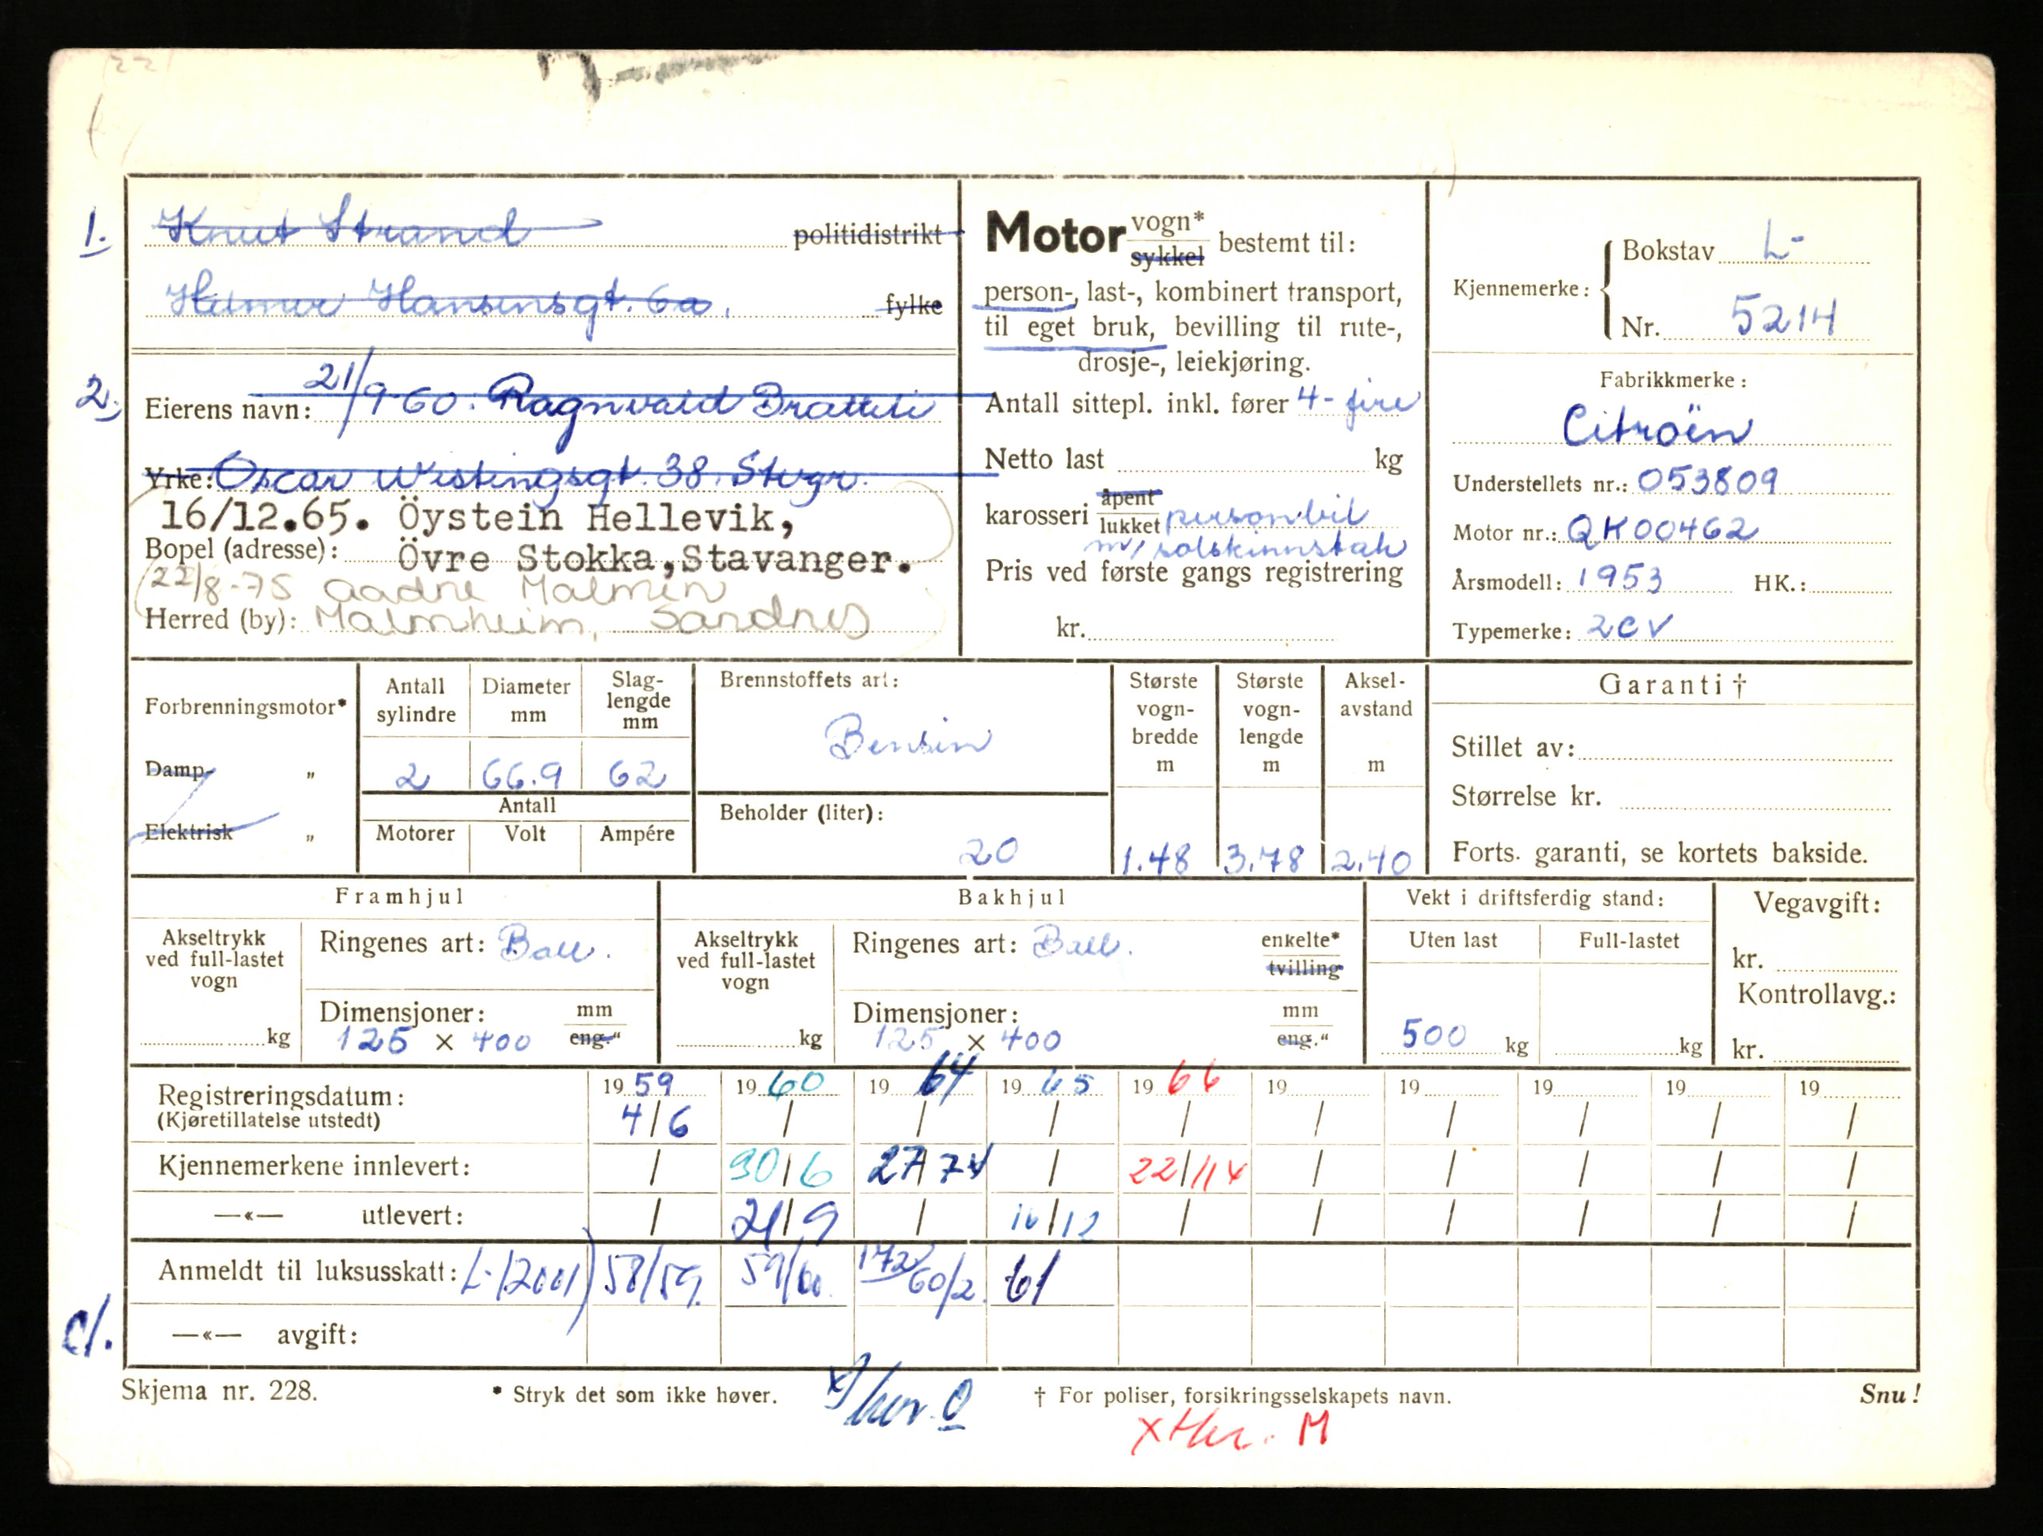 1. Knut Strand politidistrikt
Hilmar Hansensgt. 6a. fylke
2. Eierens navn: 21/9-60. Ragnvald Brattli
Yrke: Oscar Wistingsgt. 38. Stvgr.
16/12.65. Öystein Hellevik,
Bopel (adresse): Övre Stokka, Stavanger.
22/8-75 Aadne Malmin
Herred (by): Malmheim, Sandnes
Motor vogn* sykkel bestemt til:
person-, last-, kombinert transport,
til eget bruk, bevilling til rute-,
drosje-, leiekjøring.
Antall sittepl. inkl. fører 4- fire
Netto last kg
karosseri åpent lukket personbil
m/ solskinnstak
Pris ved første gangs registrering
kr.
Kjennemerke: Bokstav L-
Nr. 5214
Fabrikkmerke:
Citroën
Understellets nr.: 053809
Motor nr.: QK00462
Årsmodell: 1953 HK.:
Typemerke: 2CV
Forbrenningsmotor*
Damp- „
Elektrisk „
Antall sylindre 2
Diameter mm 66.9
Slaglengde mm 62
Antall
Motorer Volt Ampére
Brennstoffets art:
Bensin
Beholder (liter):
20
Største vognbredde m 1.48
Største vognlengde m 3.78
Akselavstand m 2.40
Garanti †
Stillet av:
Størrelse kr.
Forts. garanti, se kortets bakside.
Framhjul
Akseltrykk ved full-lastet vogn kg
Ringenes art: Ball.
Dimensjoner: mm eng."
125 × 400
Bakhjul
Akseltrykk ved full-lastet vogn kg
Ringenes art: Ball. enkelte* tvilling
Dimensjoner: mm eng."
125 × 400
Vekt i driftsferdig stand:
Uten last Full-lastet
500 kg kg
Vegavgift:
kr.
Kontrollavg.:
kr.
Registreringsdatum: 1959 1960 1964 1965 1966 19 19 19 19 19
(Kjøretillatelse utstedt) 4/6 / / / / / / / / /
Kjennemerkene innlevert: / 30/6 27/7 x / 22/11 x / / / / /
—«— utlevert: / 21/9 / 16/12 / / / / / /
Anmeldt til luksusskatt: L-12001) 58/59. 59/60. 172 60/2. 61
cl. —«— avgift:
Skjema nr. 228. * Stryk det som ikke høver. † For poliser, forsikringsselskapets navn. Snu!
x) her. O
x Her. M